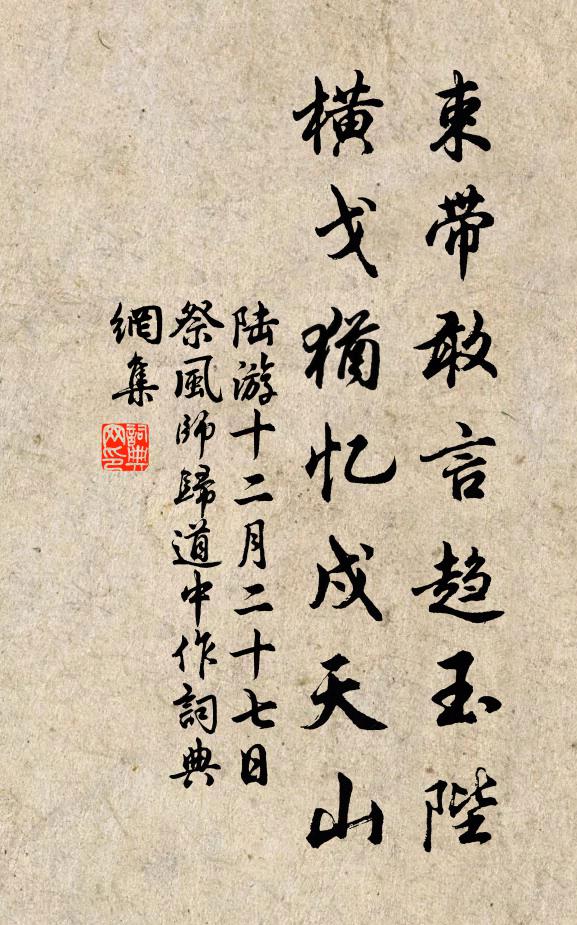 束带敢言趋玉陛
横戈犹忆戍天山
陆游十二月二十七日
祭風师歸道中作詞典
網集
詞典网印